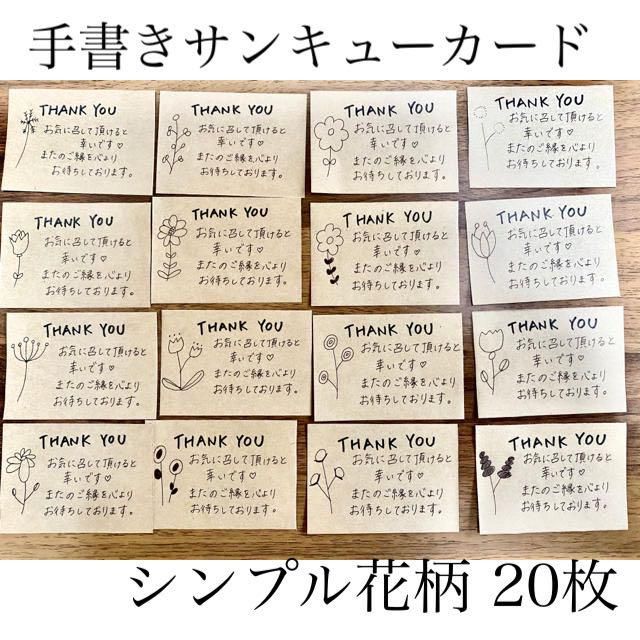 手書きサンキューカード
THANK YOU
お気に召して頂けると
幸いです♡
またのご縁を心より
お待ちしております。
THANK YOU
お気に召して頂けると
幸いです♡
またのご縁を心より
お待ちしております。
THANK YOU
お気に召して頂けると
幸いです♡
またのご縁を心より
お待ちしております。
THANK YOU
お気に召して頂けると
幸いです♡
またのご縁を心より
お待ちしております。
THANK YOU
お気に召して頂けると
幸いです♡
またのご縁を心より
お待ちしております。
THANK YOU
お気に召して頂けると
幸いです♡
またのご縁を心より
お待ちしております。
THANK YOU
お気に召して頂けると
幸いです♡
またのご縁を心より
お待ちしております。
THANK YOU
お気に召して頂けると
幸いです♡
またのご縁を心より
お待ちしております。
THANK YOU
お気に召して頂けると
幸いです♡
またのご縁を心より
お待ちしております。
THANK YOU
お気に召して頂けると
幸いです♡
またのご縁を心より
お待ちしております。
THANK YOU
お気に召して頂けると
幸いです♡
またのご縁を心より
お待ちしております。
THANK YOU
お気に召して頂けると
幸いです♡
またのご縁を心より
お待ちしております。
THANK YOU
お気に召して頂けると
幸いです♡
またのご縁を心より
お待ちしております。
THANK YOU
お気に召して頂けると
幸いです♡
またのご縁を心より
お待ちしております。
THANK YOU
お気に召して頂けると
幸いです♡
またのご縁を心より
お待ちしております。
THANK YOU
お気に召して頂けると
幸いです♡
またのご縁を心より
お待ちしております。
シンプル花柄 20枚